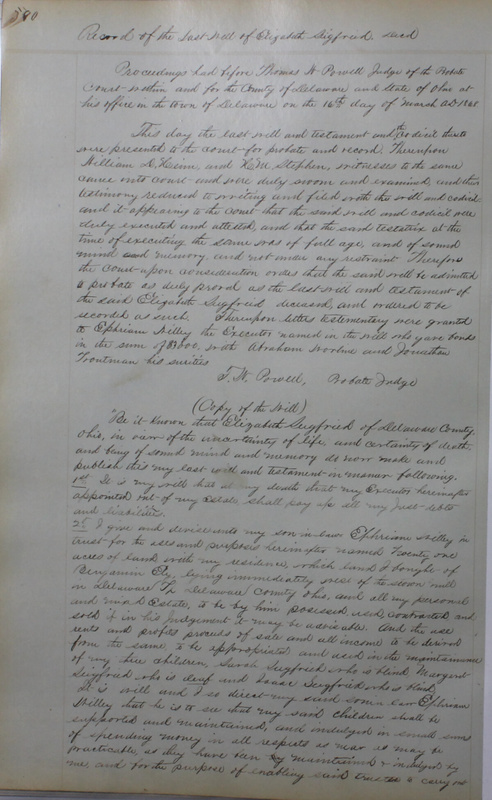 580
Record of the Last Will of Elizabeth Siegfried Decd
Proceedings had before Thomas W Powell Judge of the Probate
Court within and for the County of Delaware and State of Ohio at
his office in the town of Delaware on the 16th day of March AD 1860
This day the last will and testament and the codicil thereto
were presented to the court for probate and record. Thereupon
William D. Heim, and Stephen, witnesses to the same
came into court and were duly sworn and examined, and their
testimony reduced to writing and filed with the will and codicil
and it appearing to the Court that the said will and codicil were
duly executed and attested, and that the said testatrix at the
time of executing the same was of full age, and of sound
mind and memory, and not under any restraint Therefore
the Court upon consideration orders that the said will be admitted
to probate as duly proved as the last will and testament of
the said Elizabeth Siegfried deceased, and ordered to be
recorded as such. Thereupon letters testementary were granted
to Ephriam Willey the Executor named in the will who gave bonds
in the sum of with Abraham Worline and Jonathan
Troutman his sureties
T. W. Powell, Probate Judge
(Copy of the Will)
"Be it known that Elizabeth Siegfried of Delaware County
Ohio, in view of the uncertainty of life, and certainty of death,
and being of sound mind and memory do now make and
publish this my last will and testament in manner following.
1st It is my will that at my death that my Executor hereinafter
appointed out of my Estate, shall pay all my just debts
and liabilities.
2d I give and devise unto my son in law Ephriam Willey in
trust for the uses and purposes hereinafter named Twenty one
acres of land with my residence, which land I bought of
Benjamin lying immediately west of the town
in Delaware Tp Delaware County Ohio, and all my personal
and mixed Estate, to be by him possessed, used, contracted and
sold if in his judgement it may be advisable. And the use
rents and profits proceeds of sale and all income to be derived
from the same to be appropriated and used in the maintainance
of my three children, Sarah Siegfried who is blind, Margaret
Siegfried who is deaf and Isaac Siegfried who is
It is will and I so direct my said son in law Ephriam
Willey that he is to see that my said children shall be
supported and maintained, and indulged in small sums
of spending money in all respects as near as may be
practicable, as they have been by maintained & indulged by
me, and for the purpose of enabling said trustee to carry out